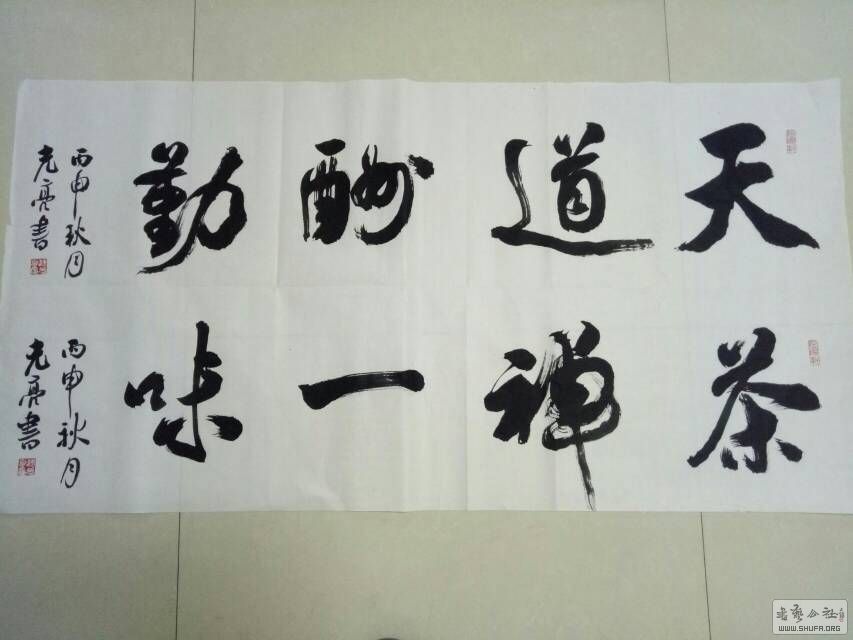 天道酬勤
丙申秋月
光亮書
茶禅一味
丙申秋月
光亮書
書艺公社
WWW.SHUFA.ORG